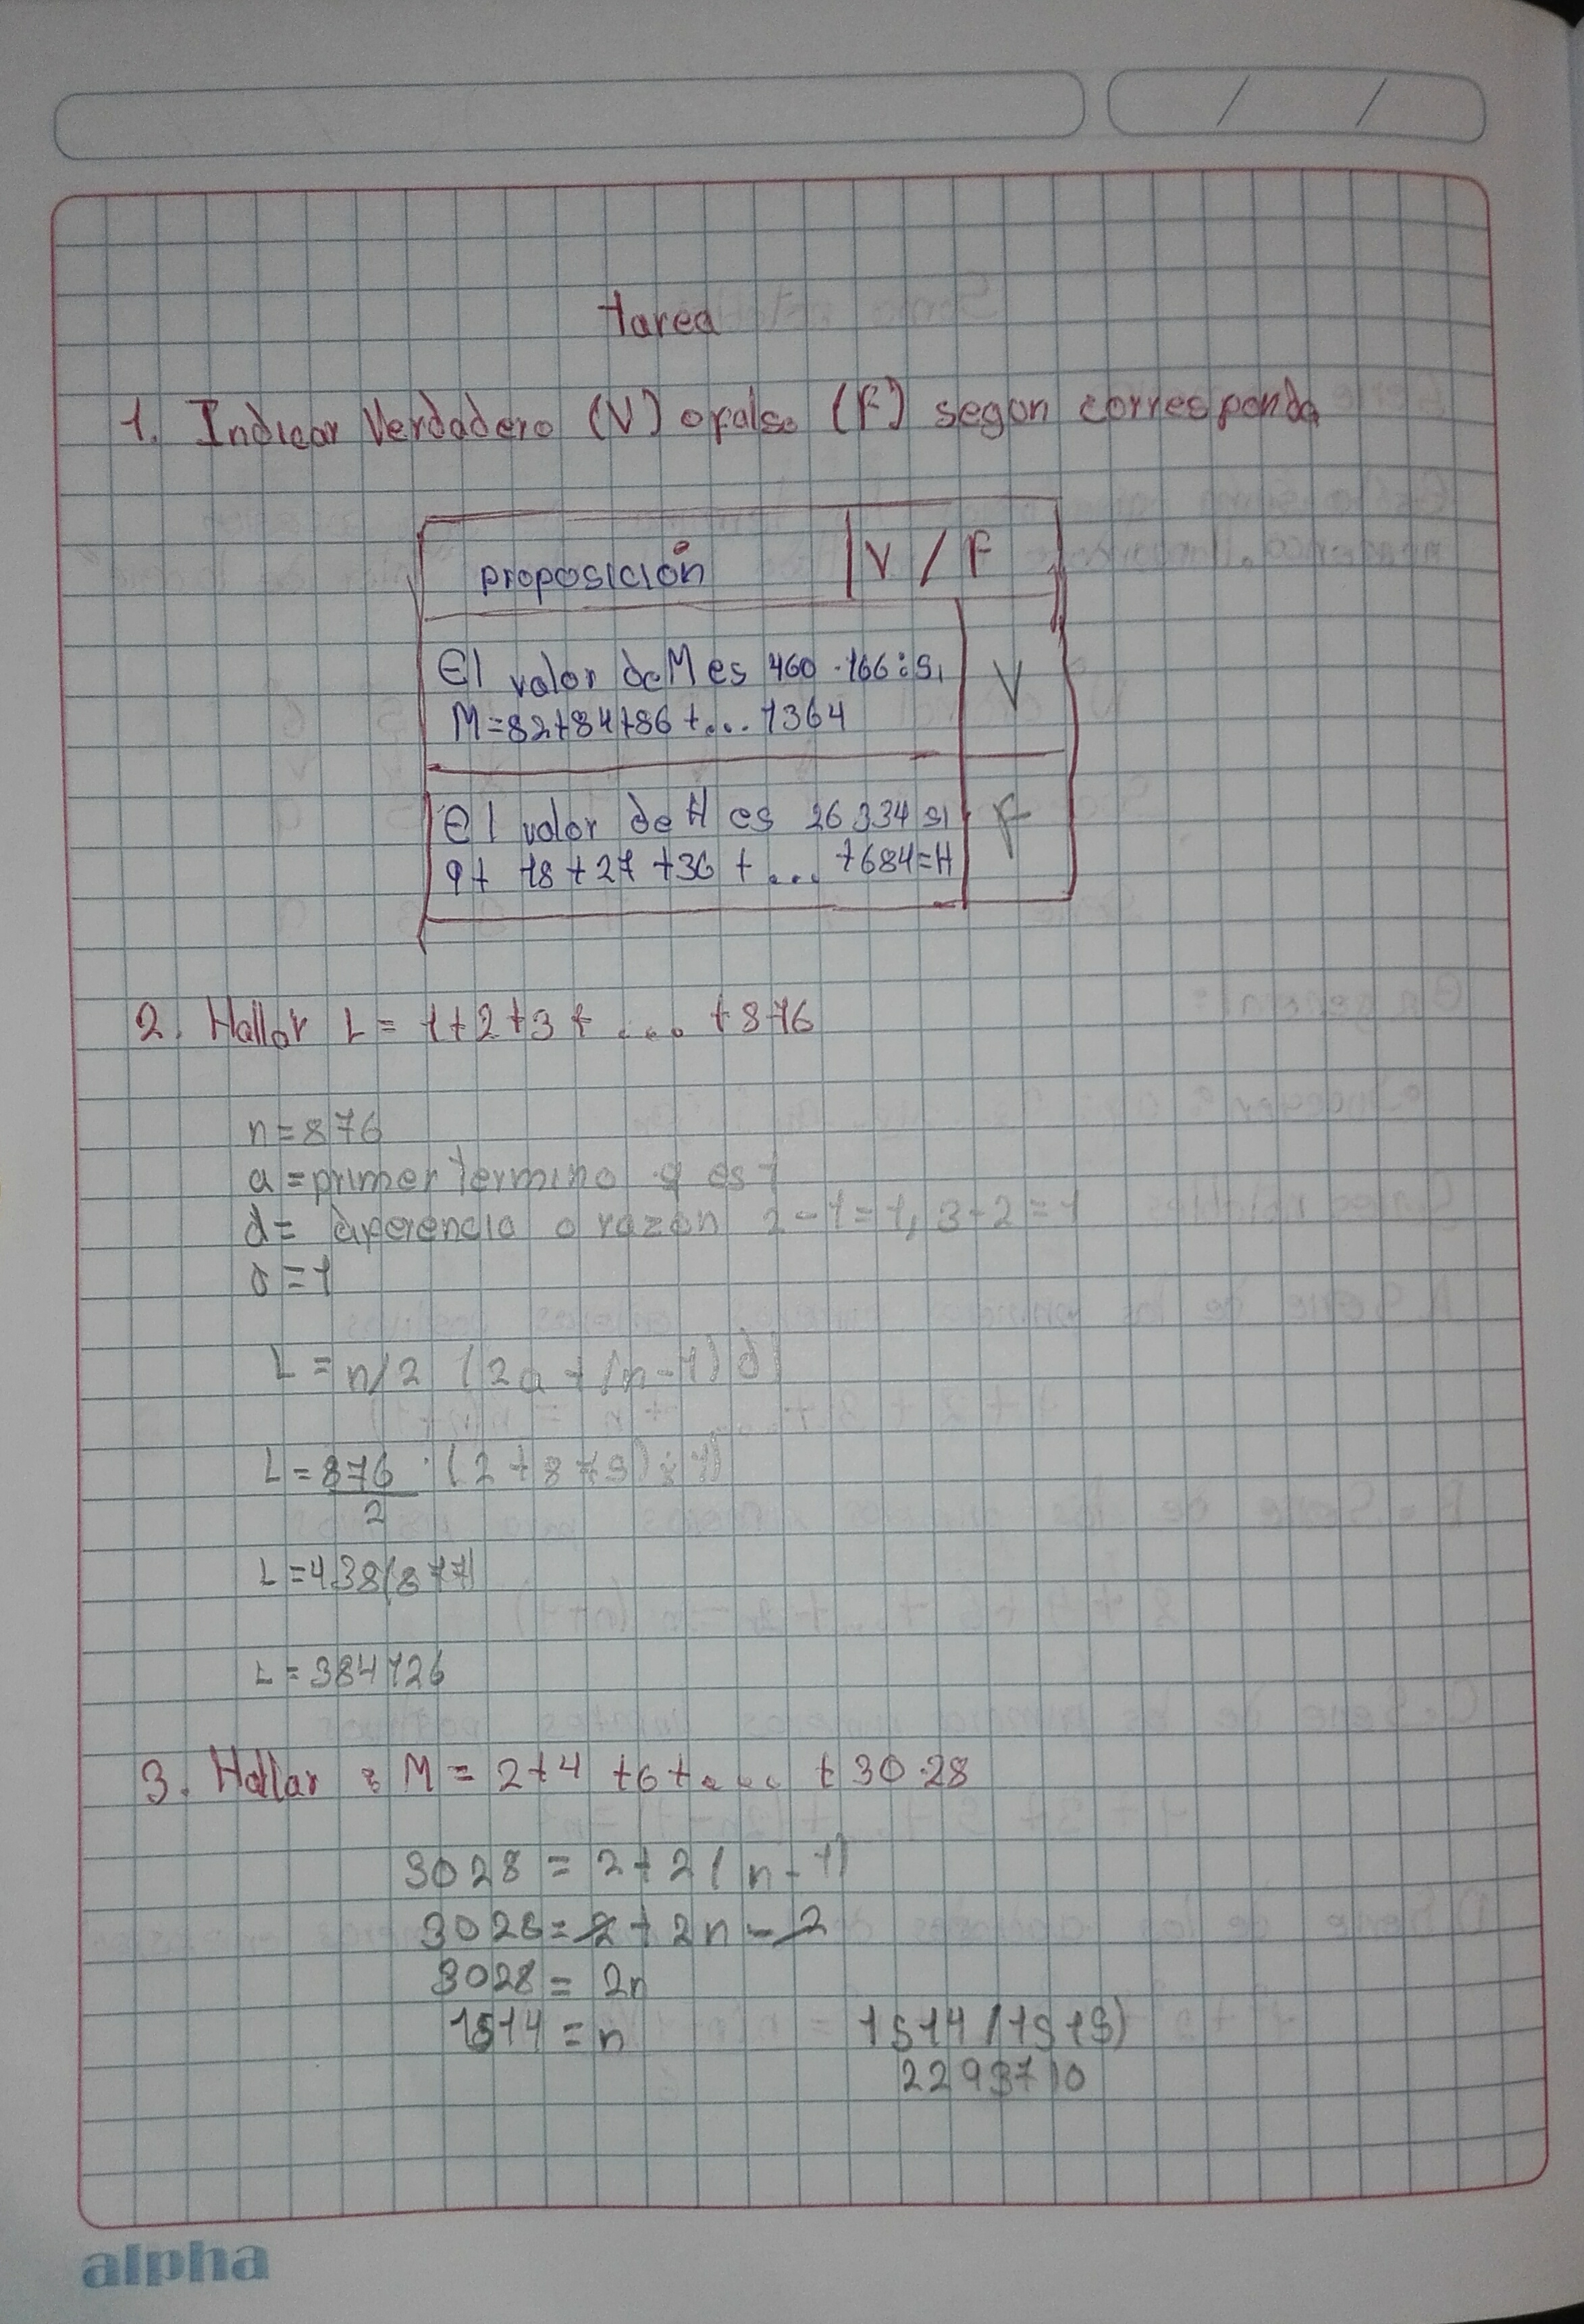 tarea
1. Indicar Verdadero (V) o falso (F) segun corresponda
proposición V / F
El valor de M es 460 166 : si V
M=82+84+86+... 1364
El valor de H es 26 334 si F
9+ 18+27+36+... +684=H
2. Hallar L = 1+2+3+ ... +876
n=876
a = primer termino q es 1
d= diferencia o razon 2-1=1, 3-2=1
d=1
L = n/2 (2a+(n-1)d)
L = 876
2
L=438(877)
L=384126
3. Hallar : M = 2+4+6+... + 3028
3028 = 2+2(n-1)
3028=2+2n-2
3028 = 2n
1514 = n 1514(1515)
2293710
alpha